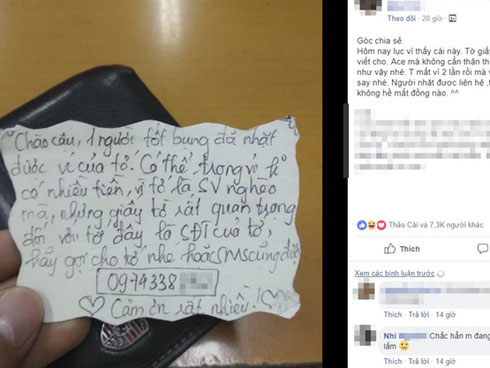 Chào cậu, 1 người tốt bụng đã nhặt
được ví của tớ. Có thể trong ví k
có nhiều tiền, vì tớ là SV nghèo
mà, nhưng giấy tờ rất quan trọng
đối với tớ đây là SĐT của tớ,
hãy gọi cho tớ nhé hoặc SMS cũng được
0974338
Cảm ơn rất nhiều!
Theo dõi · 20 giờ ·
Góc chia sẻ.
Hôm nay lục ví thấy cái này. Tờ giấ
viết cho. Ace mà không cẩn thận th
như vậy nhé. T mất ví 2 lần rồi mà v
say nhé. Người nhặt được liên hệ ,t
không hề mất đồng nào. ^^
Thảo Cải và 7,3K người khác
Thích
Xem các bình luận trước
Thích · Trả lời · 14 giờ
Nhi Chắc hẳn m đang
lắm
Thích · Trả lời · 14 giờ